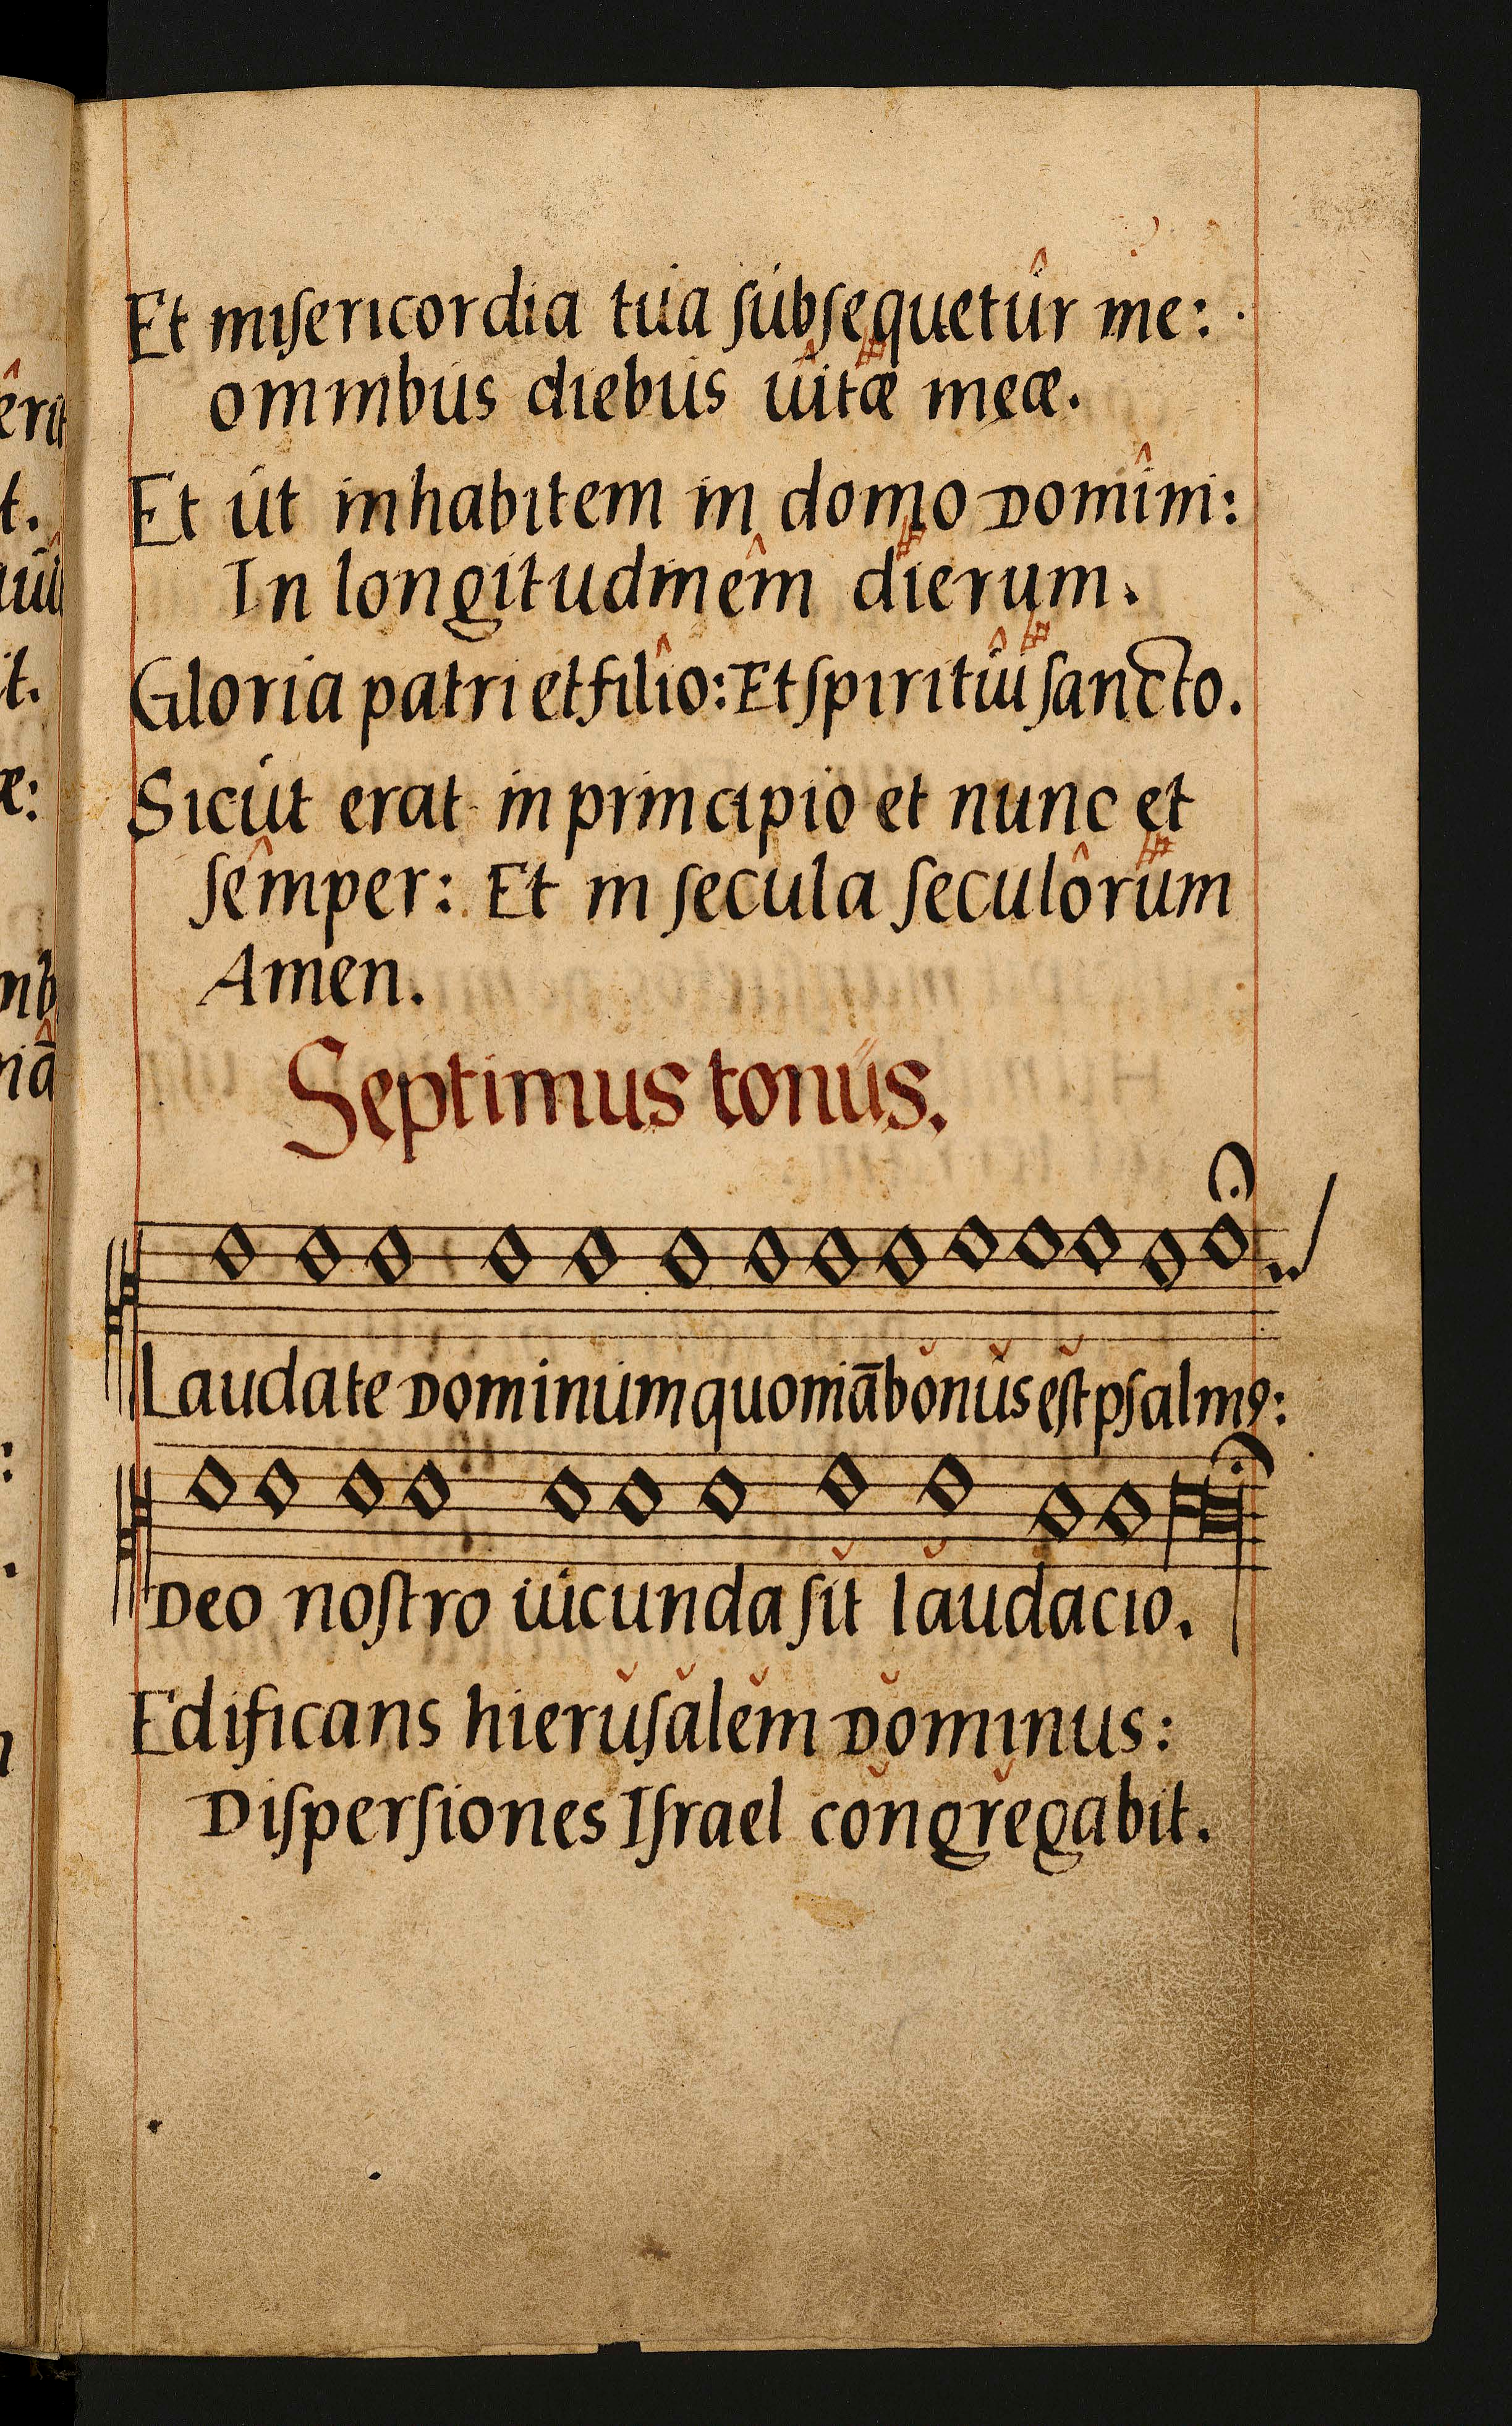 Et miſericordia tua ſubſequetûr me:
omnibus diebus uîtæ meæ.
Et ut inhabitem in domo Domîni:
In longitudinêm dierum.
Gloria patri et filîo: Et ſpiritûi ſancto.
Sicut erat in principio et nunc et
ſêmper: Et in ſecula ſeculôrum
Amen.
Septimus tonus.
Laudate Dominum quoniā bŏnŭs eſ̆t pſalmꝰ:
Deo noſtro iucunda ſĭt lăudacio.
Edificans hierŭſălĕm Dŏminus:
Diſperſiones Iſrael cŏngrĕgabit.